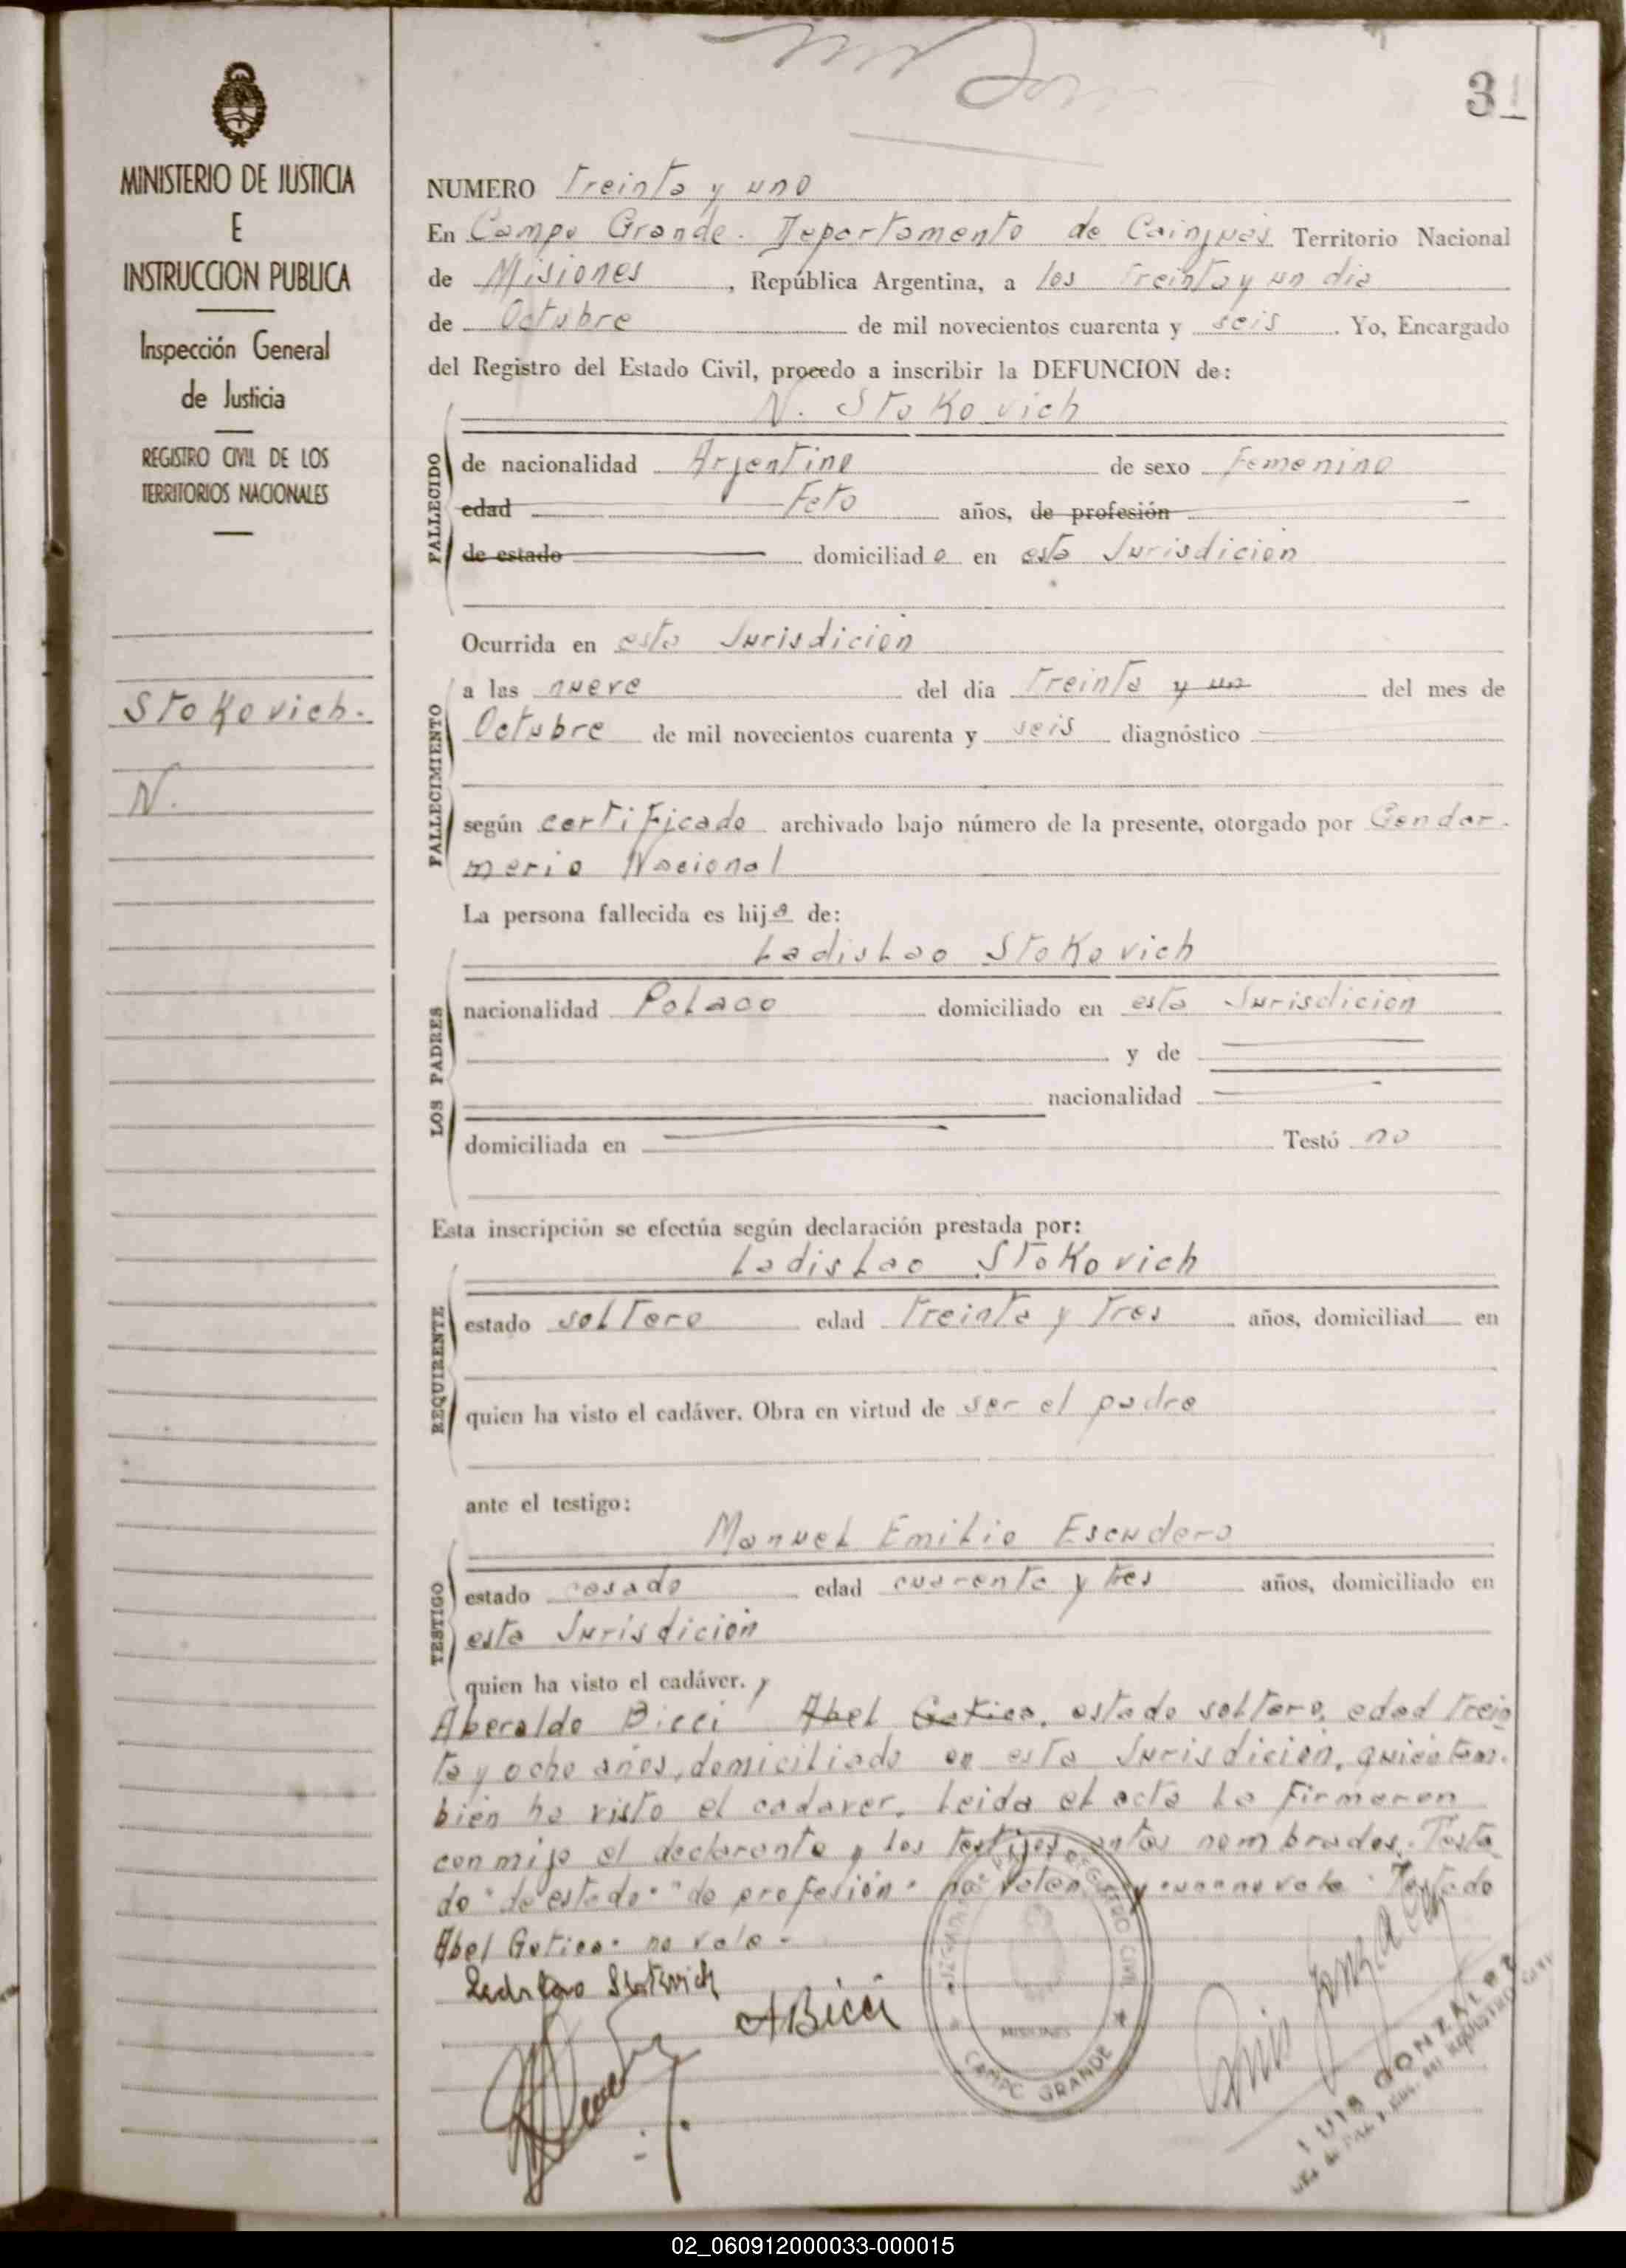 31
MINISTERIO DE JUSTICIA
E
INSTRUCCION PUBLICA
Inspección General
de Justicia
REGISTRO CIVIL DE LOS
TERRITORIOS NACIONALES
Stokovich.
N.
NUMERO treinta y uno
En Campo Grande. Departamento de Cainguás Territorio Nacional
de Misiones, República Argentina, a los treinta y un dia
de Octubre de mil novecientos cuarenta y seis. Yo, Encargado
del Registro del Estado Civil, procedo a inscribir la DEFUNCION de:
N. Stokovich
FALLECIDO
de nacionalidad Argentino de sexo Femenino
edad Feto años, de profesión
de estado domiciliado en esta Jurisdicion
Ocurrida en esta Jurisdicion
FALLECIMIENTO
a las nueve del día treinta y un del mes de
Octubre de mil novecientos cuarenta y seis diagnóstico
según certificado archivado bajo número de la presente, otorgado por Gendar-
meria Nacional
La persona fallecida es hija de:
Ladislao Stokovich
LOS PADRES
nacionalidad Polaco domiciliado en esta Jurisdicion
y de
nacionalidad
domiciliada en Testó no
Esta inscripción se efectúa según declaración prestada por:
Ladislao Stokovich
REQUIRENTE
estado soltero edad treinta y tres años, domiciliad en
quien ha visto el cadáver. Obra en virtud de ser el padre
ante el testigo:
Manuel Emilio Escudero
TESTIGO
estado casado edad cuarenta y tres años, domiciliado en
esta Jurisdicion
quien ha visto el cadáver. y
Aberaldo Bicci Abel Gatica, estado soltero, edad trein
ta y ocho años, domiciliado en esta Jurisdicion, quien tam-
bien ha visto el cadaver. Leida el acta la firmaron
conmigo el declarante y los testigos antes nombrados. Testa
do "de estado" "de profesión" no valen y "un" no vale. Testado
Abel Gatica no vale-
A Bicci
REGISTRO CIVIL
MISIONES
CAMPO GRANDE
Luis Gonzalez
LUIS GONZALEZ
02_060912000033-000015